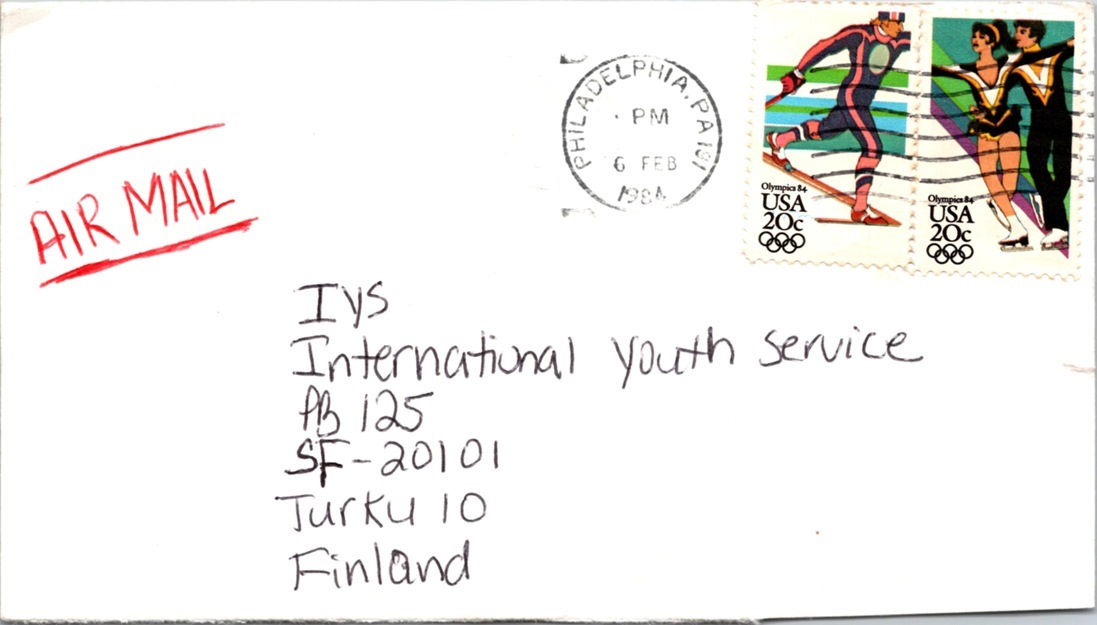 PHILADELPHIA, PA 191
PM
6 FEB
1984
Olympics 84
USA
20c
Olympics 84
USA
20c
AIR MAIL
IYS
International Youth Service
PB 125
SF-20101
Turku 10
Finland